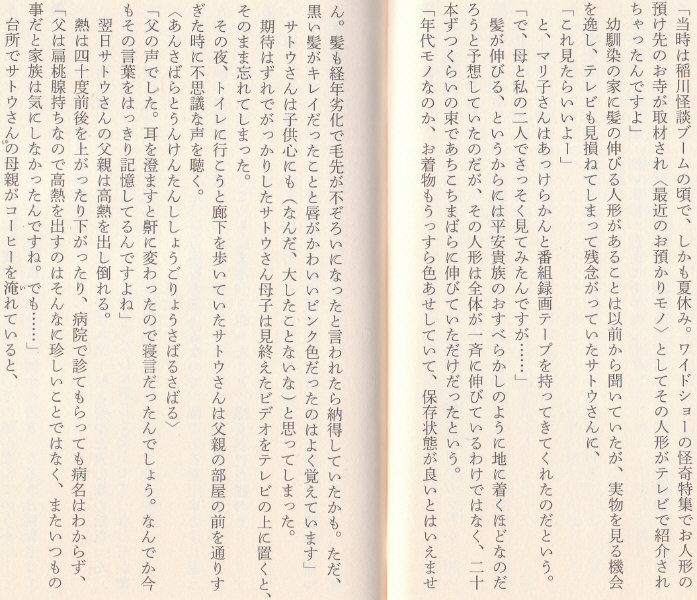 「当時は稲川怪談ブームの頃で、しかも夏休み、ワイドショーの怪奇特集でお人形の
預け先のお寺が取材され〈最近のお預かりモノ〉としてその人形がテレビで紹介され
ちゃったんですよ」
幼馴染の家に髪の伸びる人形があることは以前から聞いていたが、実物を見る機会
を逸し、テレビも見損ねてしまって残念がっていたサトウさんに、
「これ見たらいいよー」
と、マリ子さんはあっけらかんと番組録画テープを持ってきてくれたのだという。
「で、母と私の二人でさっそく見てみたんですが……」
髪が伸びる、というからには平安貴族のおすべらかしのように地に着くほどなのだ
ろうと予想していたのだが、その人形は全体が一斉に伸びているわけではなく、二十
本ずつくらいの束であちこちまばらに伸びていただけだったという。
「年代モノなのか、お着物もうっすら色あせしていて、保存状態が良いとはいえませ
ん。髪も経年劣化で毛先が不ぞろいになったと言われたら納得していたかも。ただ、
黒い髪がキレイだったことと唇がかわいいピンク色だったのはよく覚えています」
サトウさんは子供心にも（なんだ、大したことないな）と思ってしまった。
期待はずれでがっかりしたサトウさん母子は見終えたビデオをテレビの上に置くと、
そのまま忘れてしまった。
その夜、トイレに行こうと廊下を歩いていたサトウさんは父親の部屋の前を通りす
ぎた時に不思議な声を聴く。
〈あんさばらとうんけんたんししょうごりょうさばるさばる〉
「父の声でした。耳を澄ますと鼾に変わったので寝言だったんでしょう。なんでか今
もその言葉をはっきり記憶してるんですよね」
翌日サトウさんの父親は高熱を出し倒れる。
熱は四十度前後を上がったり下がったり、病院で診てもらっても病名はわからず、
「父は扁桃腺持ちなので高熱を出すのはそんなに珍しいことではなく、またいつもの
事だと家族は気にしなかったんですね。でも……」
台所でサトウさんの母親がコーヒーを淹れていると、